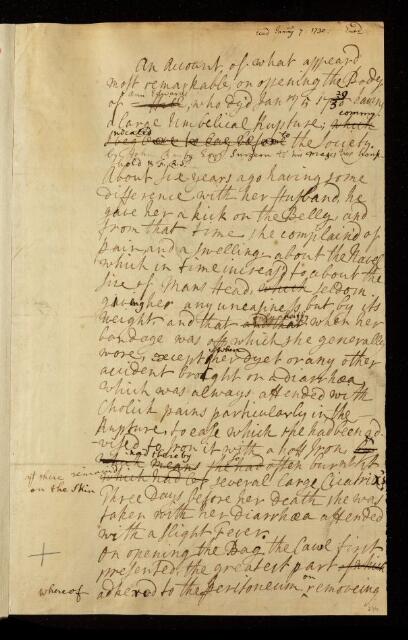 read Janry 7. 1730.
An Account of what appeard
most remarkable, on opening the Body
Ann Edwards
of who dyed Jan ry 5 17 29/30 having
a Large Umbelical Rupture; which
comuni-
indicated
to the Society.
by John Ranby Esqr Surgeon to his Majesties Hous-
hold & F.R.S.
About six years ago having some
difference with her Husband, he
gave her a kick on the Belly and
from that time she complaind of
pain, and a swelling about the Navel
which in time increas'd to about the
size of a Mans Head, which seldom
gave her any uneasiness but by its
weight and that and that when her
bandage was off, which she generally
wore, except when her Dyet or any other
accident brought on a diarrhæa
which was always attended with
Cholick pains particularly in the
Rupture; to ease which she had been ad-
-vised to Iron it with a hott Iron &
which means she had often burnt it
and thereby
off there remained
which had by several Large Cicatrix's
on the Skin
Three Days before her Death she was
taken with her Diarrhæa attended
with a slight Fever.
On opening the Bag, the Cawl first
presented, the greatest part of which
whereof
adhered to the Peritoneum, on removeing